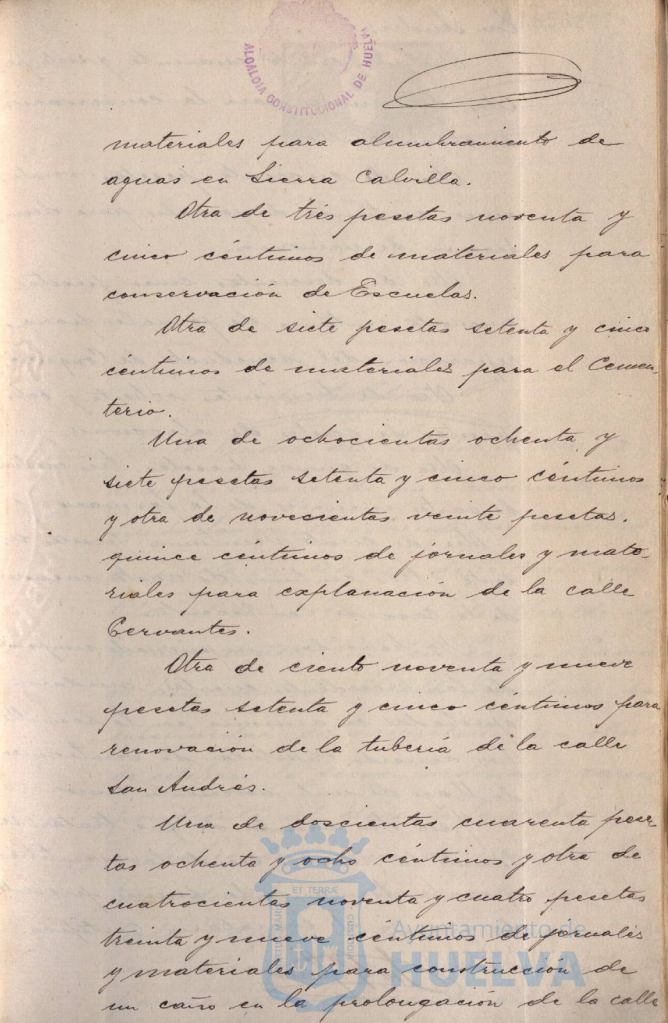 ALCALDÍA CONSTITUCIONAL DE HUELVA
materiales para alumbramiento de
aguas en Sierra Calvilla.
Otra de trés pesetas noventa y
cinco céntimos de materiales para
conservación de Escuelas.
Otra de siete pesetas setenta y cinco
céntimos de materiales para el Cemen-
terio.
Una de ochocientas ochenta y
siete pesetas setenta y cinco céntimos
y otra de novecientas veinte pesetas.
quince céntimos de jornales y mate-
riales para explanación de la calle
Cervantes.
Otra de ciento noventa y nueve
pesetas setenta y cinco céntimos para
renovación de la tubería de la calle
San Andrés.
Una de doscientas cuarenta pese-
tas ochenta y ocho céntimos y otra de
cuatrocientas noventa y cuatro pesetas
treinta y nueve céntimos de jornales
y materiales para construcción de
un caño en la prolongación de la calle
Ayuntamiento de
HUELVA